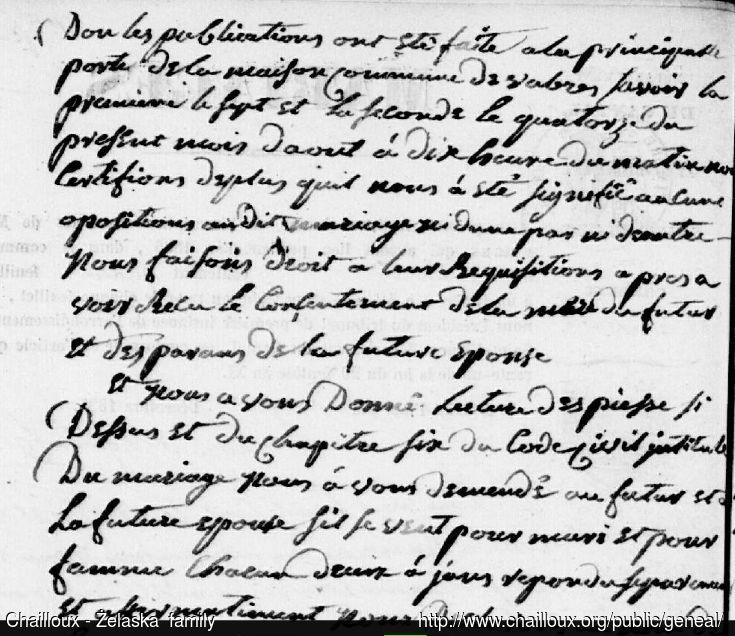 Don les publications ont eté faite a la principalle
porte de la maison Commune de vabres savoir la
premiere le sept et La seconde le quatorze du
present mois daout á dix heure du matin nou
Certifions deplus quil nous á eté signifié aucune
opositions audit mariage ni dune par ni dautre
Nous faisons droit a leur Requisitions apres a
voir Recu le Consentement de la mere du futur
Et des parans de la future Epouse
Et Nous avons Donné Lecture des piesse si
Dessus Et du Chapitre six du Code Civil intitulé
Du mariage Nous á vons demendé au futur et a
La future epouse sil se veut pour mari et pour
famme Chacun deux á jans repondu separemen
Chailloux - Zelaska family
http://www.chailloux.org/public/geneal/